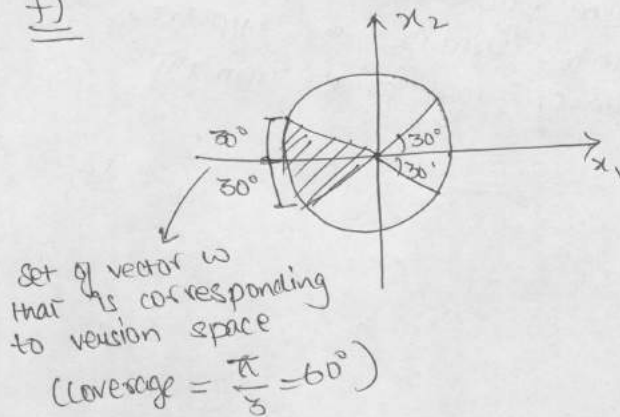 f)
x₂
30°
30°
30°
30°
x₁
set of vector w
that is corresponding
to version space
(coverage = π/3 = 60°)